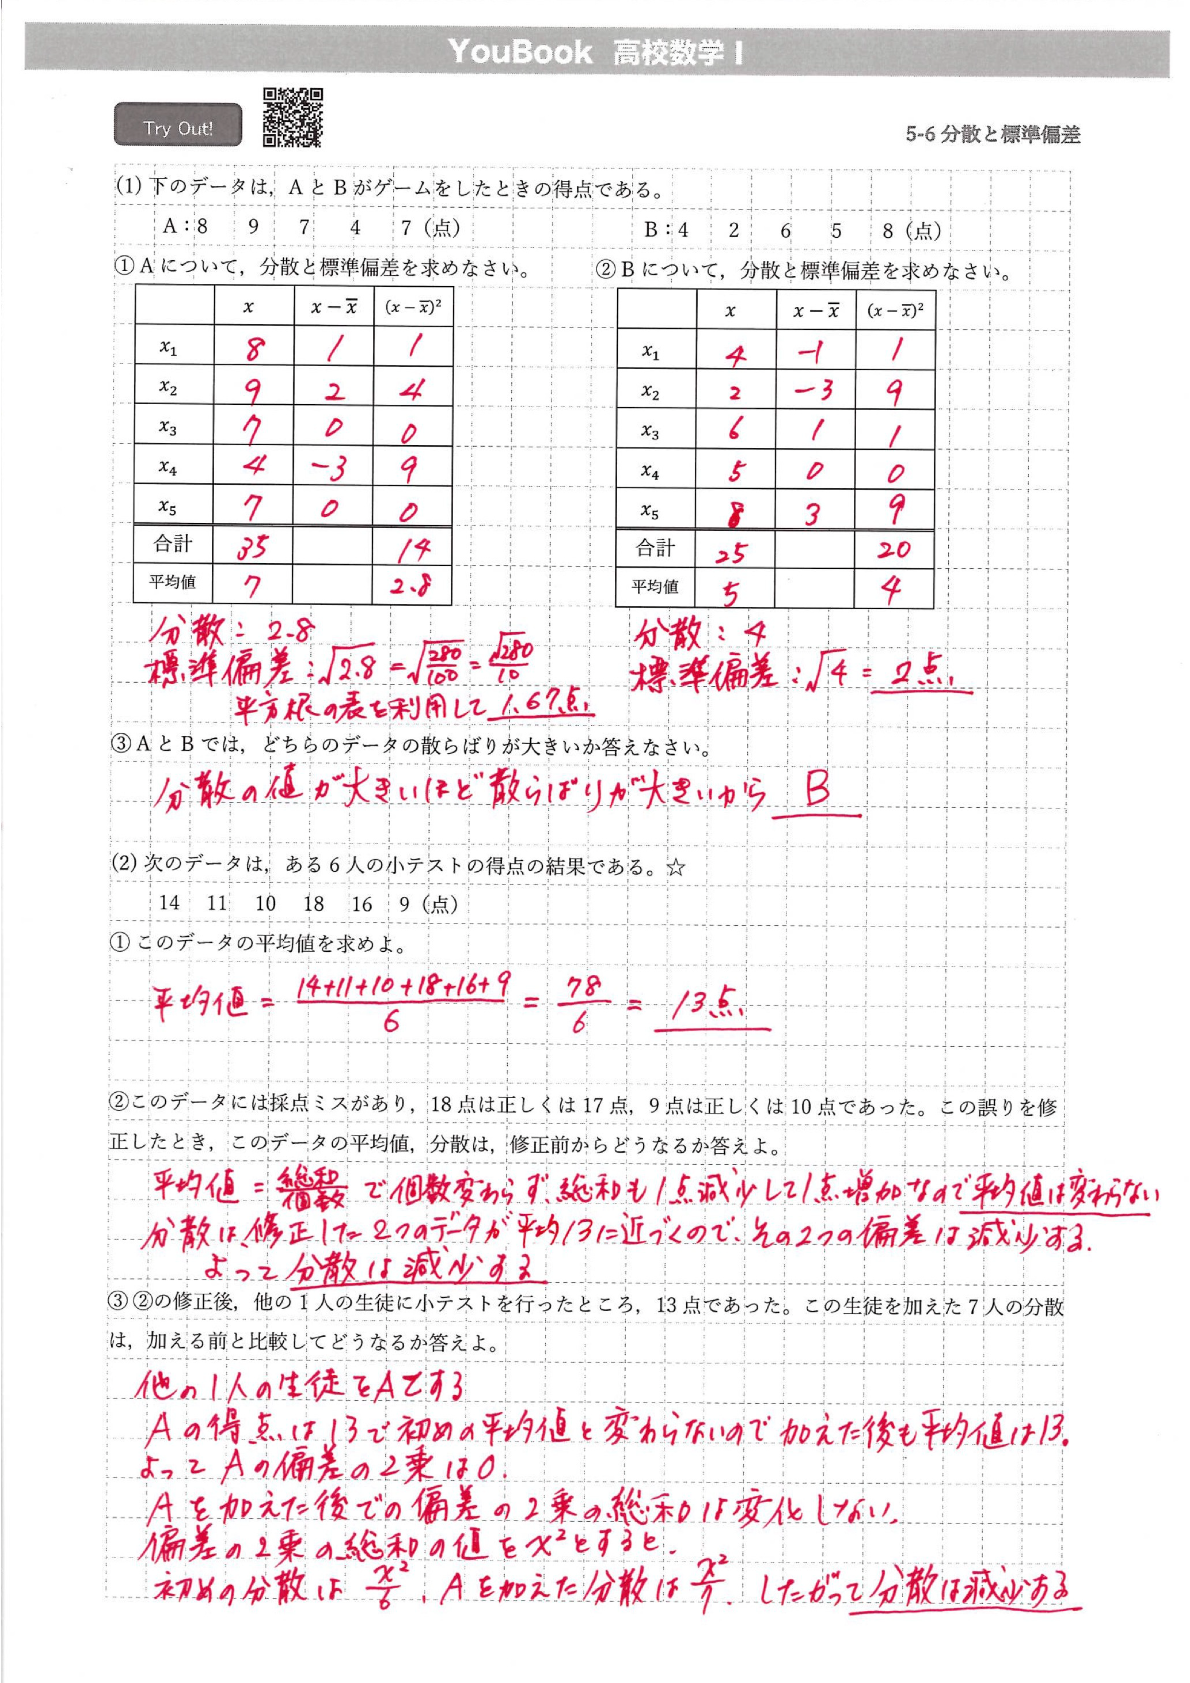 YouBook 高校数学 I
Try Out!
5-6 分散と標準偏差
(1) 下のデータは，A と B がゲームをしたときの得点である。
A：8 9 7 4 7（点） B：4 2 6 5 8（点）
① A について，分散と標準偏差を求めなさい。 ② B について，分散と標準偏差を求めなさい。
x x − x̄ (x − x̄)²
x₁ 8 1 1
x₂ 9 2 4
x₃ 7 0 0
x₄ 4 −3 9
x₅ 7 0 0
合計 35 14
平均値 7 2.8
x x − x̄ (x − x̄)²
x₁ 4 −1 1
x₂ 2 −3 9
x₃ 6 1 1
x₄ 5 0 0
x₅ 8 3 9
合計 25 20
平均値 5 4
分散：2.8
標準偏差：√2.8 = √(280/100) = √280/10
平方根の表を利用して 1.67点
分散：4
標準偏差：√4 = 2点
③ A と B では，どちらのデータの散らばりが大きいか答えなさい。
分散の値が大きいほど散らばりが大きいから B
(2) 次のデータは，ある 6 人の小テストの得点の結果である。☆
14 11 10 18 16 9（点）
① このデータの平均値を求めよ。
平均値 = (14+11+10+18+16+9)/6 = 78/6 = 13点
②このデータには採点ミスがあり，18 点は正しくは 17 点，9 点は正しくは 10 点であった。この誤りを修
正したとき，このデータの平均値，分散は，修正前からどうなるか答えよ。
平均値 = 総和/個数 で個数変わらず、総和も1点減少して1点増加なので平均値は変わらない
分散は、修正した2つのデータが平均13に近づくので、その2つの偏差は減少する.
よって分散は減少する
③ ②の修正後，他の 1 人の生徒に小テストを行ったところ，13 点であった。この生徒を加えた 7 人の分散
は，加える前と比較してどうなるか答えよ。
他の1人の生徒をAとする
Aの得点は13で初めの平均値と変わらないので加えた後も平均値は13。
よってAの偏差の2乗は0.
Aを加えた後での偏差の2乗の総和は変化しない.
偏差の2乗の総和の値をx²とすると.
初めの分散は x²/6 , Aを加えた分散は x²/7. したがって分散は減少する